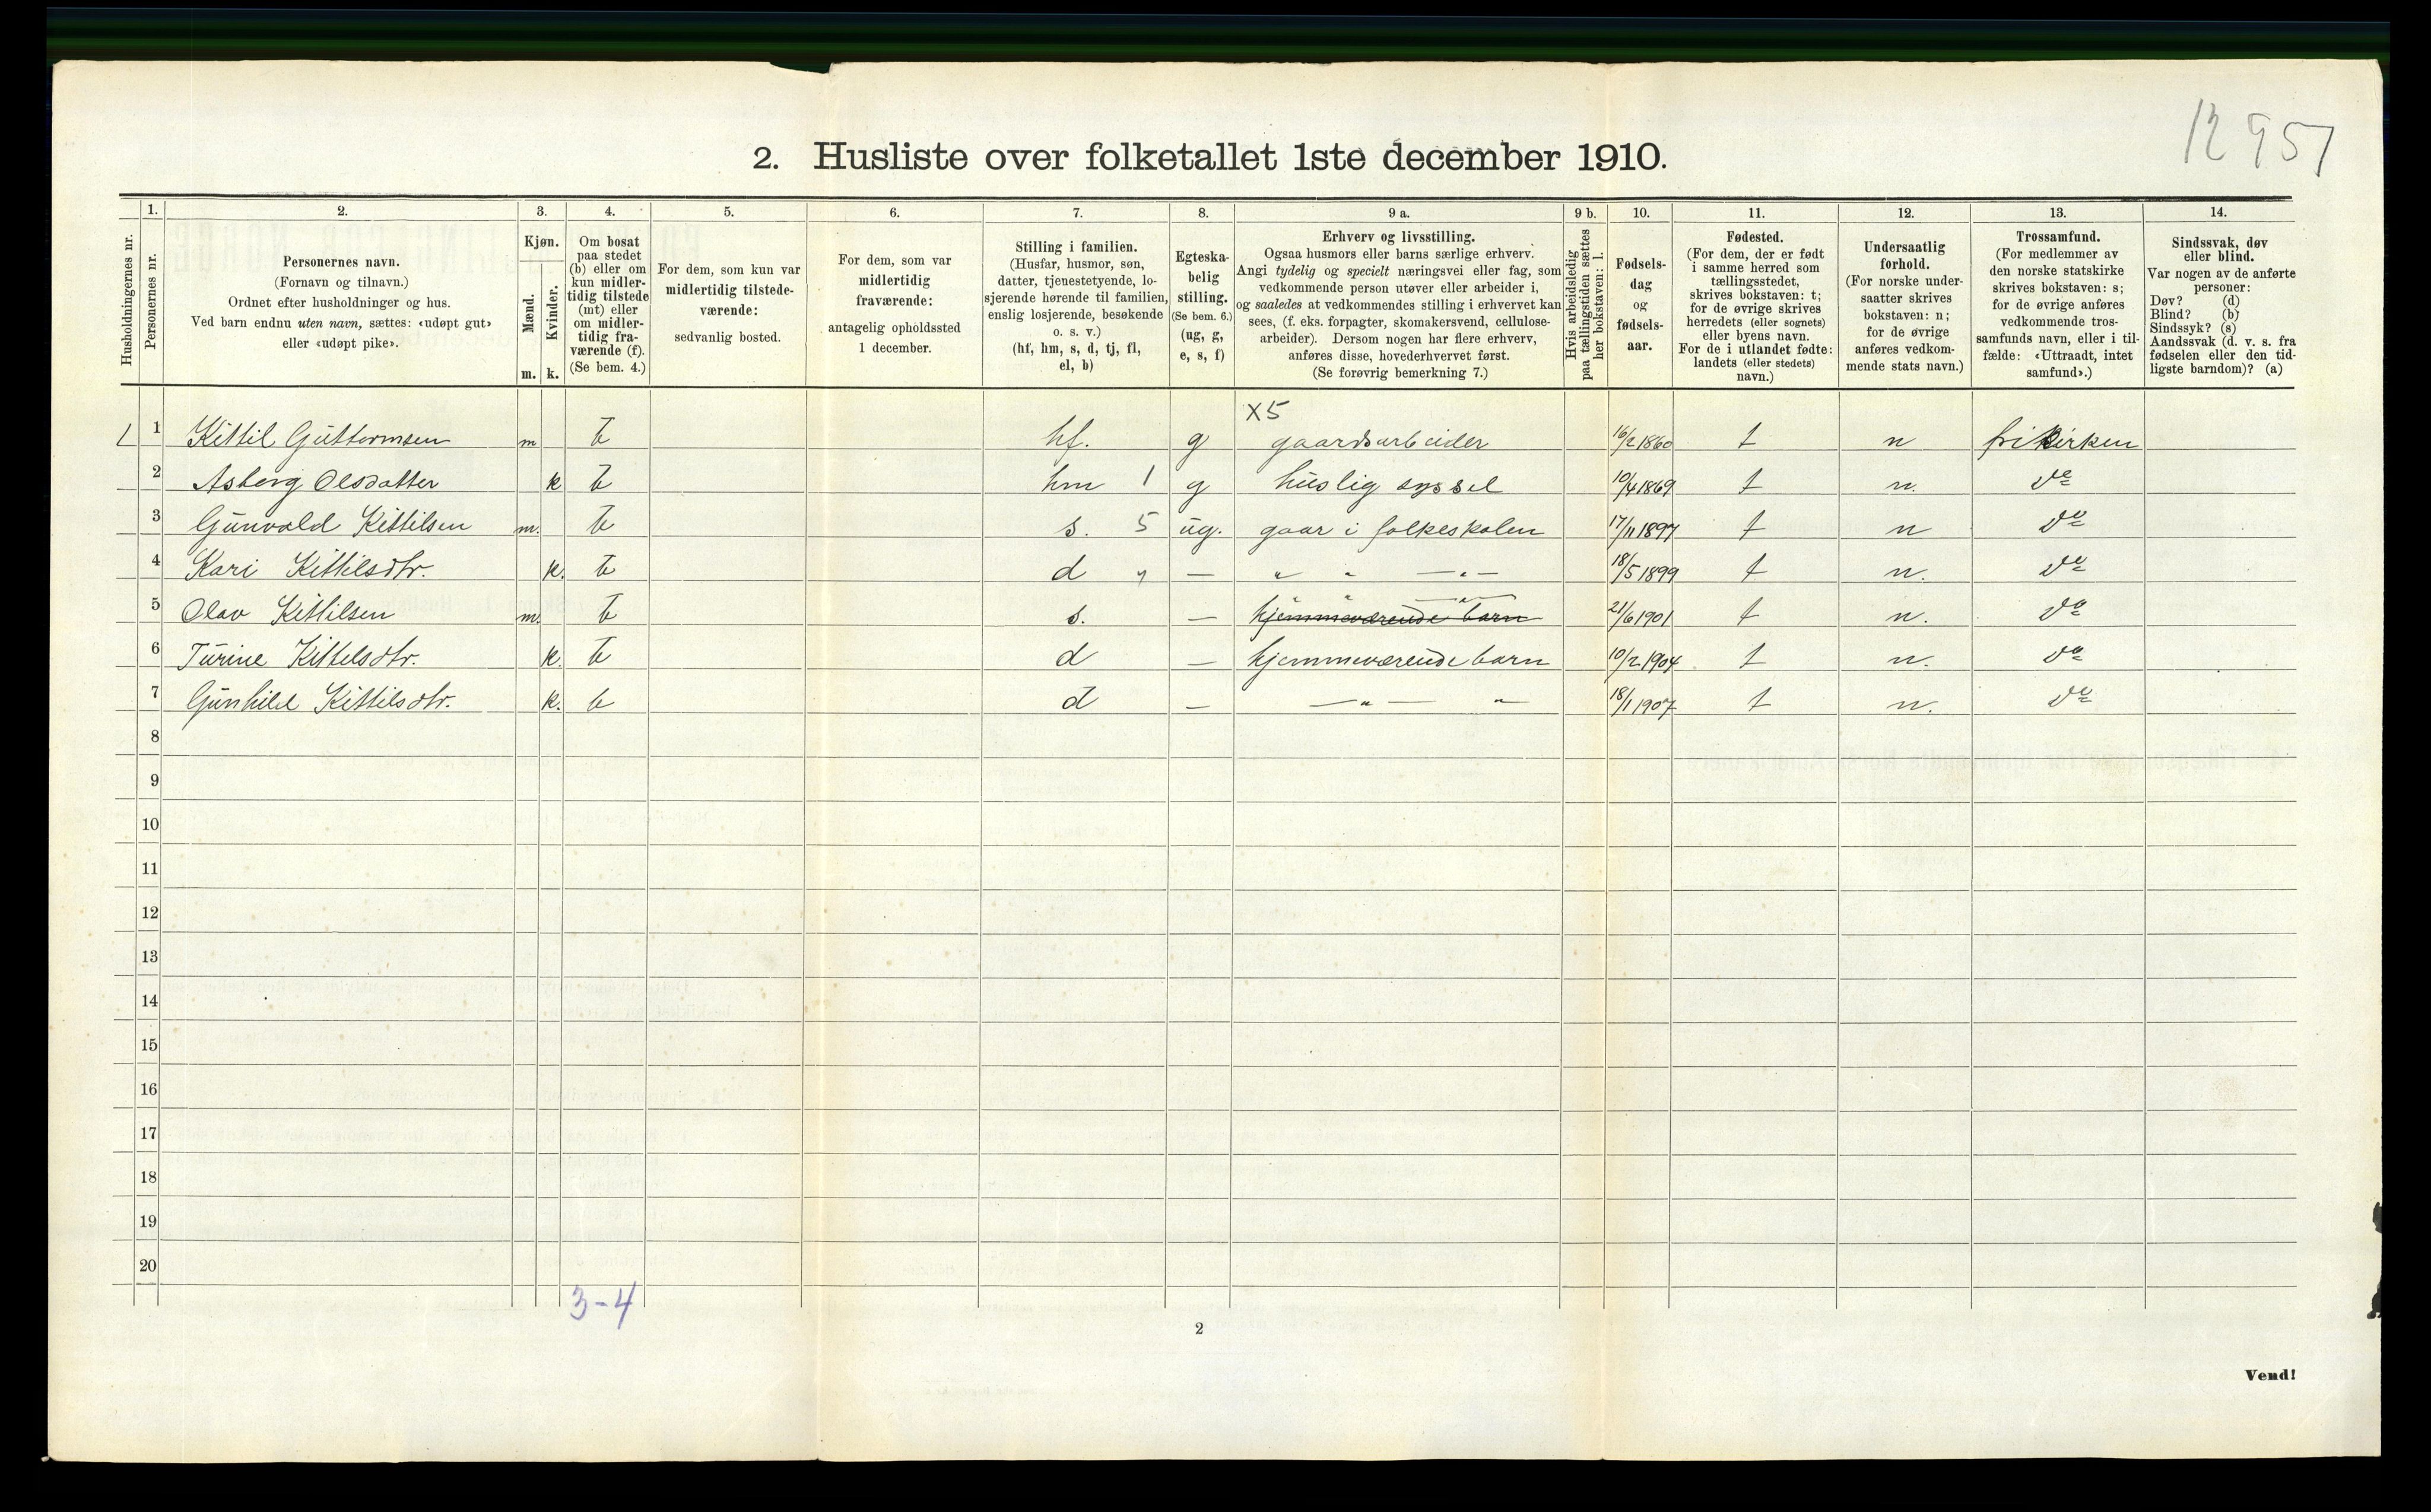 12957
2. Husliste over folketallet 1ste december 1910.
Husholdningernes nr.
1.
Personernes nr.
2.
Personernes navn.
(Fornavn og tilnavn.)
Ordnet efter husholdninger og hus.
Ved barn endnu uten navn, sættes: «udøpt gut»
eller «udøpt pike».
3.
Kjøn.
Mænd.
Kvinder.
m. k.
4.
Om bosat
paa stedet
(b) eller om
kun midler-
tidig tilstede
(mt) eller
om midler-
tidig fra-
værende (f).
(Se bem. 4.)
5.
For dem, som kun var
midlertidig tilstede-
værende:
sedvanlig bosted.
6.
For dem, som var
midlertidig
fraværende:
antagelig opholdssted
1 december.
7.
Stilling i familien.
(Husfar, husmor, søn,
datter, tjenestetyende, lo-
sjerende hørende til familien,
enslig losjerende, besøkende
o. s. v.)
(hf, hm, s, d, tj, fl,
el, b)
8.
Egteska-
belig
stilling.
(Se bem. 6.)
(ug, g,
e, s, f)
9 a.
Erhverv og livsstilling.
Ogsaa husmors eller barns særlige erhverv.
Angi tydelig og specielt næringsvei eller fag, som
vedkommende person utøver eller arbeider i,
og saaledes at vedkommendes stilling i erhvervet kan
sees, (f. eks. forpagter, skomakersvend, cellulose-
arbeider). Dersom nogen har flere erhverv,
anføres disse, hovederhvervet først.
(Se forøvrig bemerkning 7.)
9 b.
Hvis arbeidsledig
paa tællingstiden sættes
her bokstaven: l.
10.
Fødsels-
dag
og
fødsels-
aar.
11.
Fødested.
(For dem, der er født
i samme herred som
tællingsstedet,
skrives bokstaven: t;
for de øvrige skrives
herredets (eller sognets)
eller byens navn.
For de i utlandet fødte:
landets (eller stedets)
navn.)
12.
Undersaatlig
forhold.
(For norske under-
saatter skrives
bokstaven: n;
for de øvrige
anføres vedkom-
mende stats navn.)
13.
Trossamfund.
(For medlemmer av
den norske statskirke
skrives bokstaven: s;
for de øvrige anføres
vedkommende tros-
samfunds navn, eller i til-
fælde: «Uttraadt, intet
samfund».)
14.
Sindssvak, døv
eller blind.
Var nogen av de anførte
personer:
Døv? (d)
Blind? (b)
Sindssyk? (s)
Aandssvak (d. v. s. fra
fødselen eller den tid-
ligste barndom)? (a)
X5
1 1 Kittil Guttormsen m b hf. g gaardsarbeider 16/2 1860 t n frikirken
2 Asberg Olsdatter k b hm 1 g huslig syssel 10/4 1869 t n. do
3 Gunvald Kittilsen m. b s. 5 ug. gaar i folkeskolen 17/11 1897 t n do
4 Kari Kittilsdtr. k. b d " — " " —"— 18/5 1899 t n. do
" —"—
5 Olav Kittilsen m. b s. — hjemmeværende barn 21/6 1901 t n. do
6 Turine Kittelsdtr. k. b d — hjemmeværende barn 10/2 1904 t n. do
7 Gunhild Kittilsdtr. k. b d — —"— " 18/1 1907 t n. do
8
9
10
11
12
13
14
15
16
17
18
19
20
3-4
2
Vend!